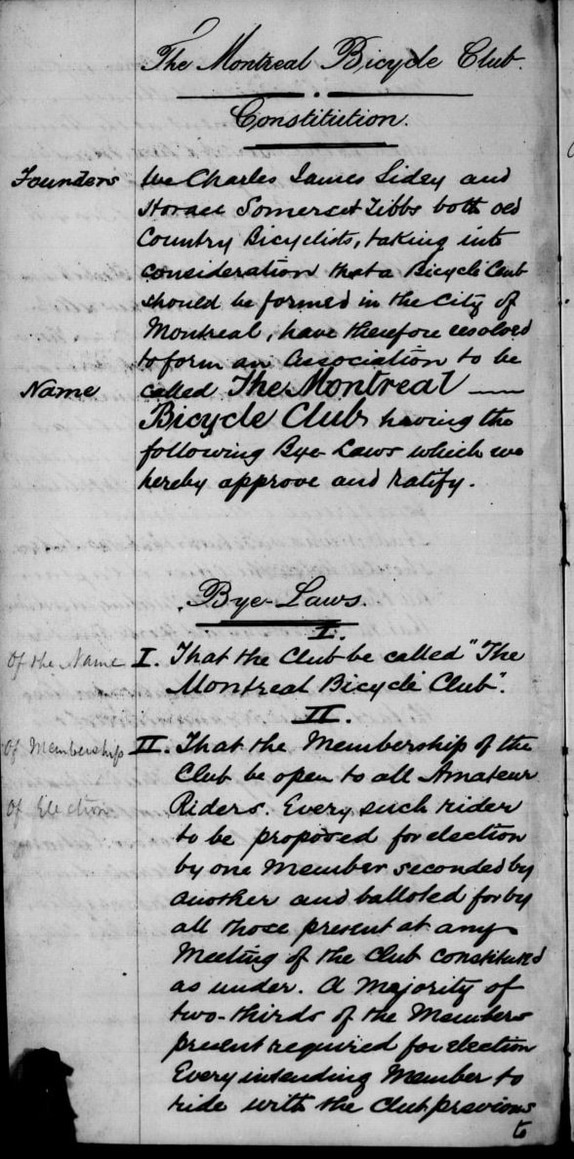 The Montreal Bicycle Club.
Constitution.
Founders We Charles James Sidey and
Horace Somerset Tibbs both old
Country Bicyclists, taking into
consideration that a Bicycle Club
should be formed in the City of
Montreal, have therefore resolved
to form an Association to be
Name called The Montreal
Bicycle Club having the
following Bye Laws which we
hereby approve and ratify.
Bye-Laws.
I.
Of the Name I. That the Club be called "The
Montreal Bicycle Club".
II.
Of Membership II. That the Membership of the
Club be open to all Amateur
Of Election Riders. Every such rider
to be proposed for election
by one Member seconded by
another and balloted for by
all those present at any
Meeting of the Club constituted
as under. A Majority of
two-thirds of the Members
present required for election
Every intending Member to
ride with the Club previous
to